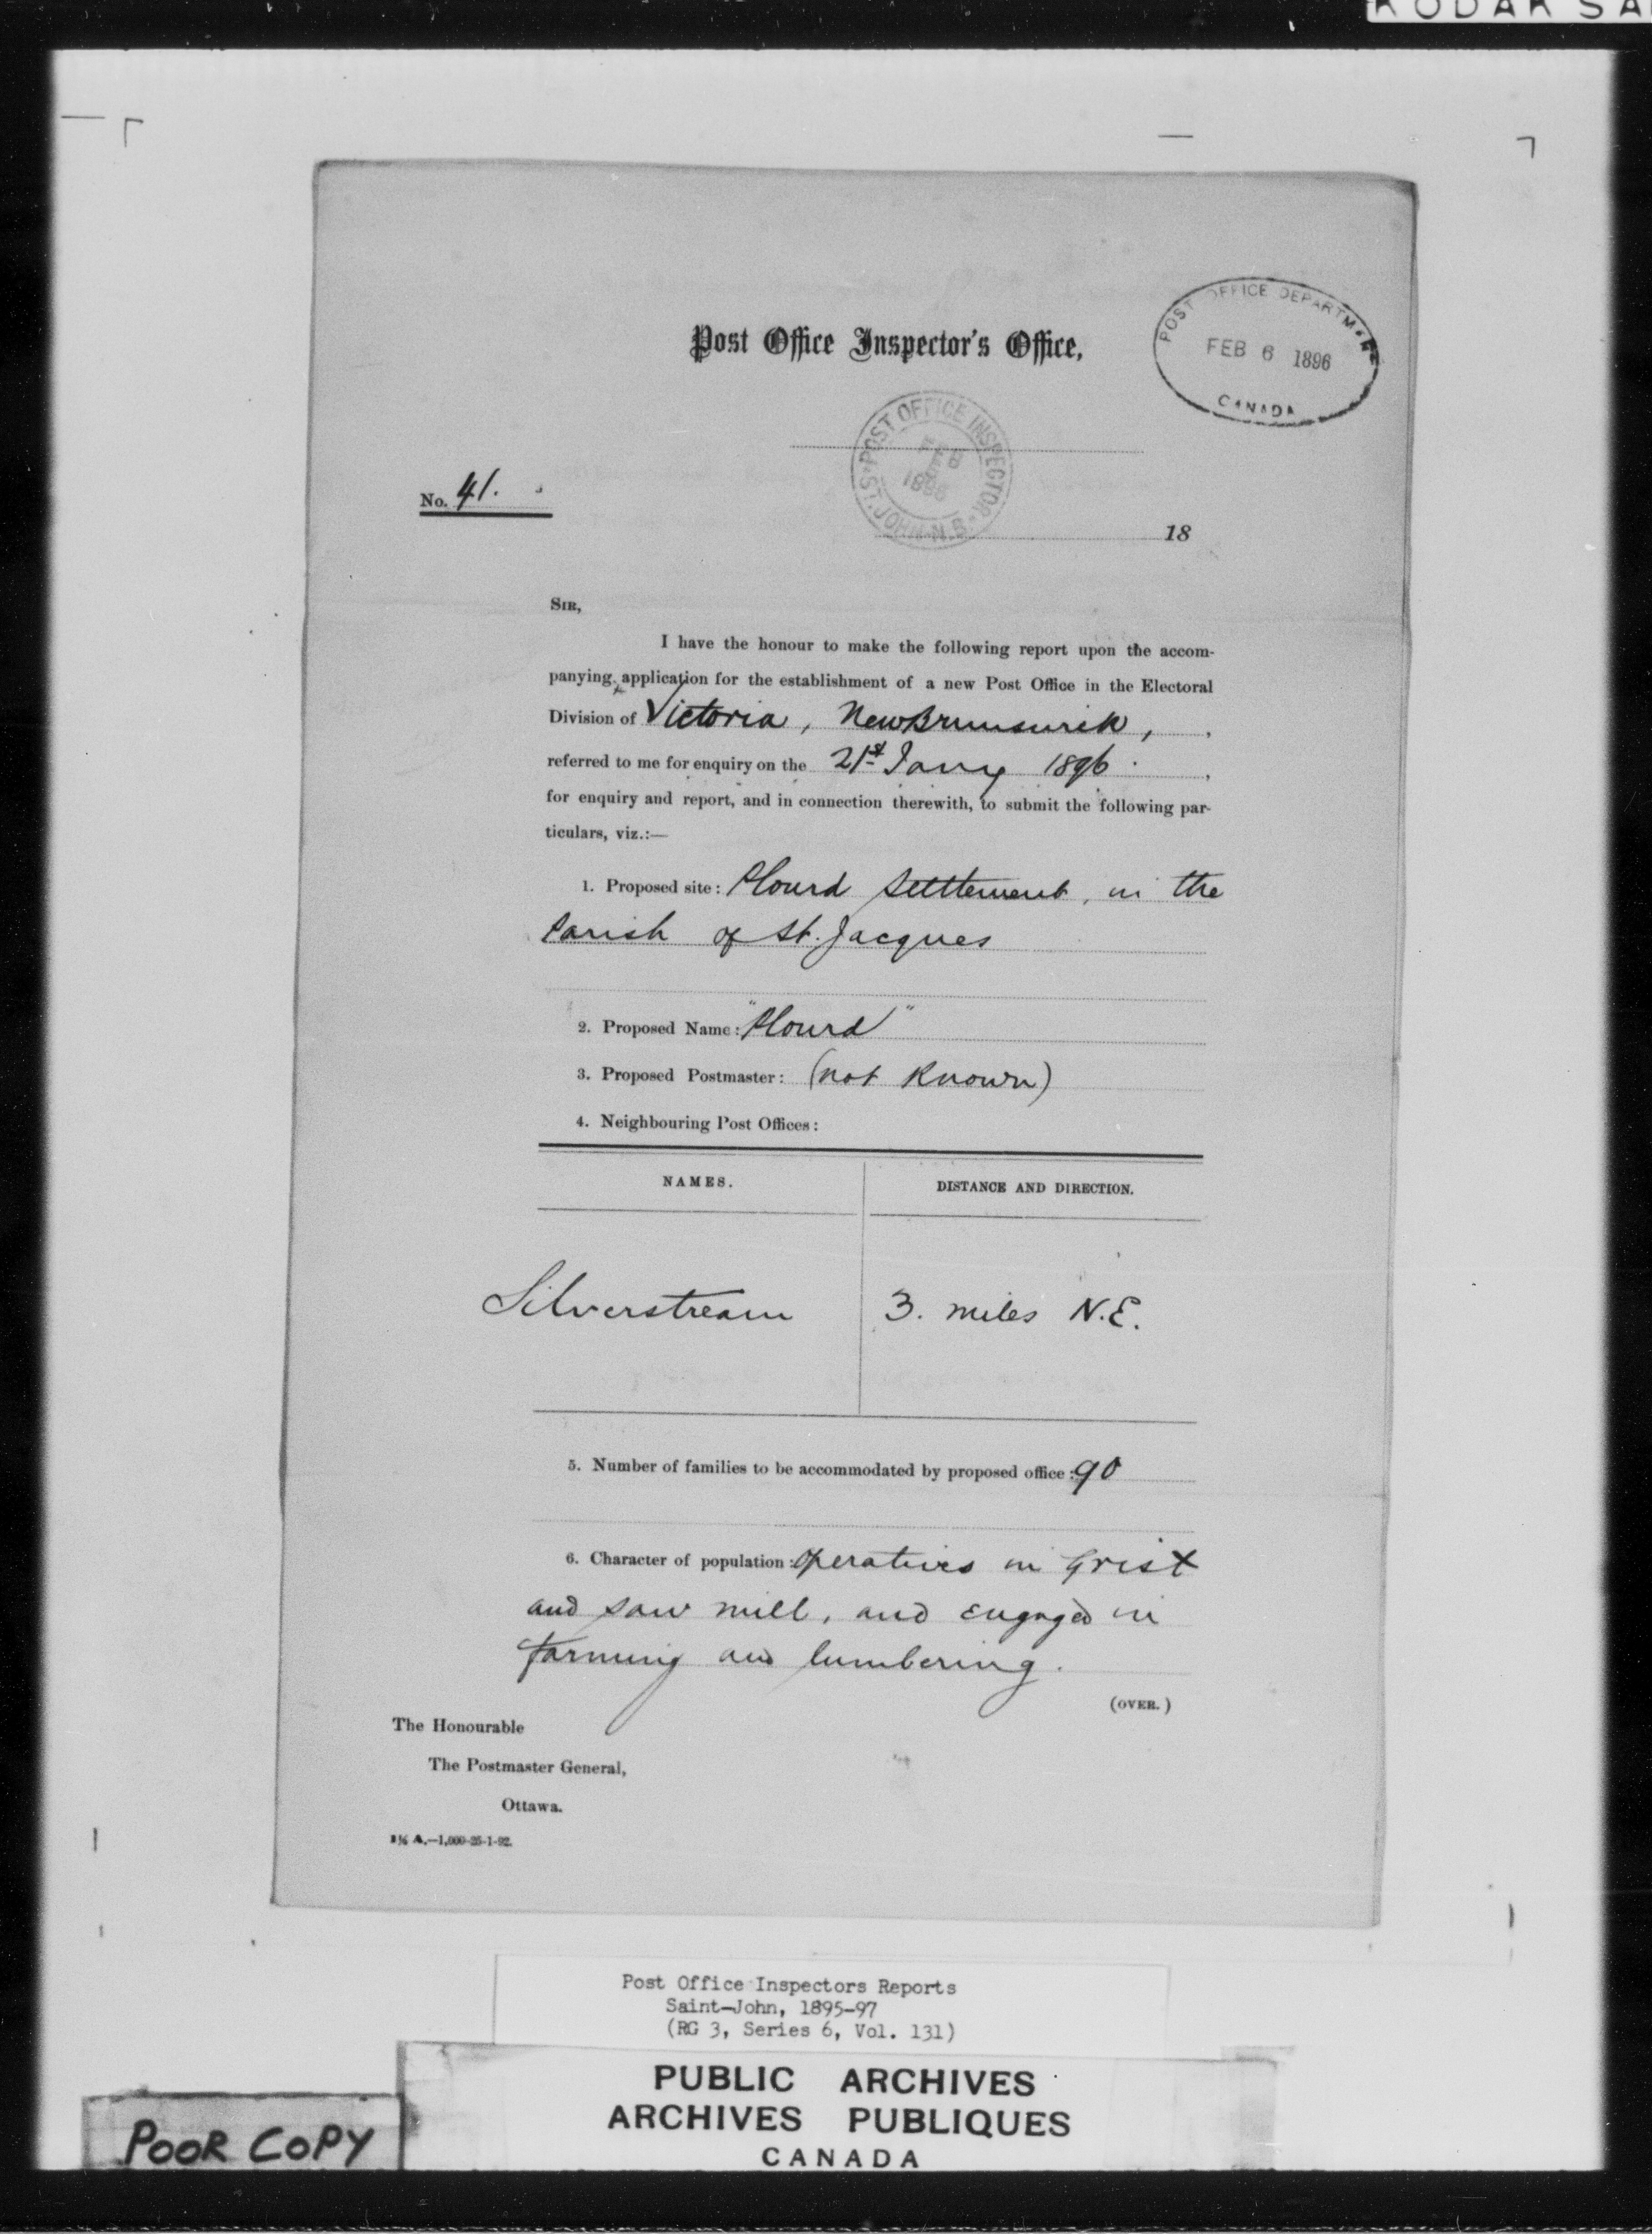 KODAK SA
Post Office Inspector's Office,
POST OFFICE DEPARTMENT
FEB 6 1896
CANADA
POST OFFICE INSPECTOR
ST. JOHN N.B.
No. 41.
18
SIR,
I have the honour to make the following report upon the accom-
panying application for the establishment of a new Post Office in the Electoral
Division of Victoria, New Brunswick,
referred to me for enquiry on the 21st Jany 1896.
for enquiry and report, and in connection therewith, to submit the following par-
ticulars, viz.:—
1. Proposed site: Plourd Settlement, in the
Parish of St. Jacques
2. Proposed Name: "Plourd"
3. Proposed Postmaster: (not known)
4. Neighbouring Post Offices:
NAMES. DISTANCE AND DIRECTION.
Silverstream 3. miles N.E.
5. Number of families to be accommodated by proposed office: 90
6. Character of population: Operatives in Grist
and saw mill, and engaged in
farming and lumbering.
(OVER.)
The Honourable
The Postmaster General,
Ottawa.
A.—1,000-25-1-92.
Post Office Inspectors Reports
Saint-John, 1895-97
(RG 3, Series 6, Vol. 131)
PUBLIC ARCHIVES
ARCHIVES PUBLIQUES
CANADA
POOR COPY